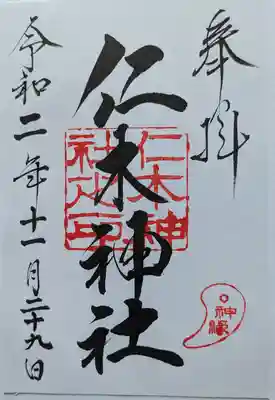 奉拝
仁木神社
仁木神
社之印
令和二年十一月二十九日